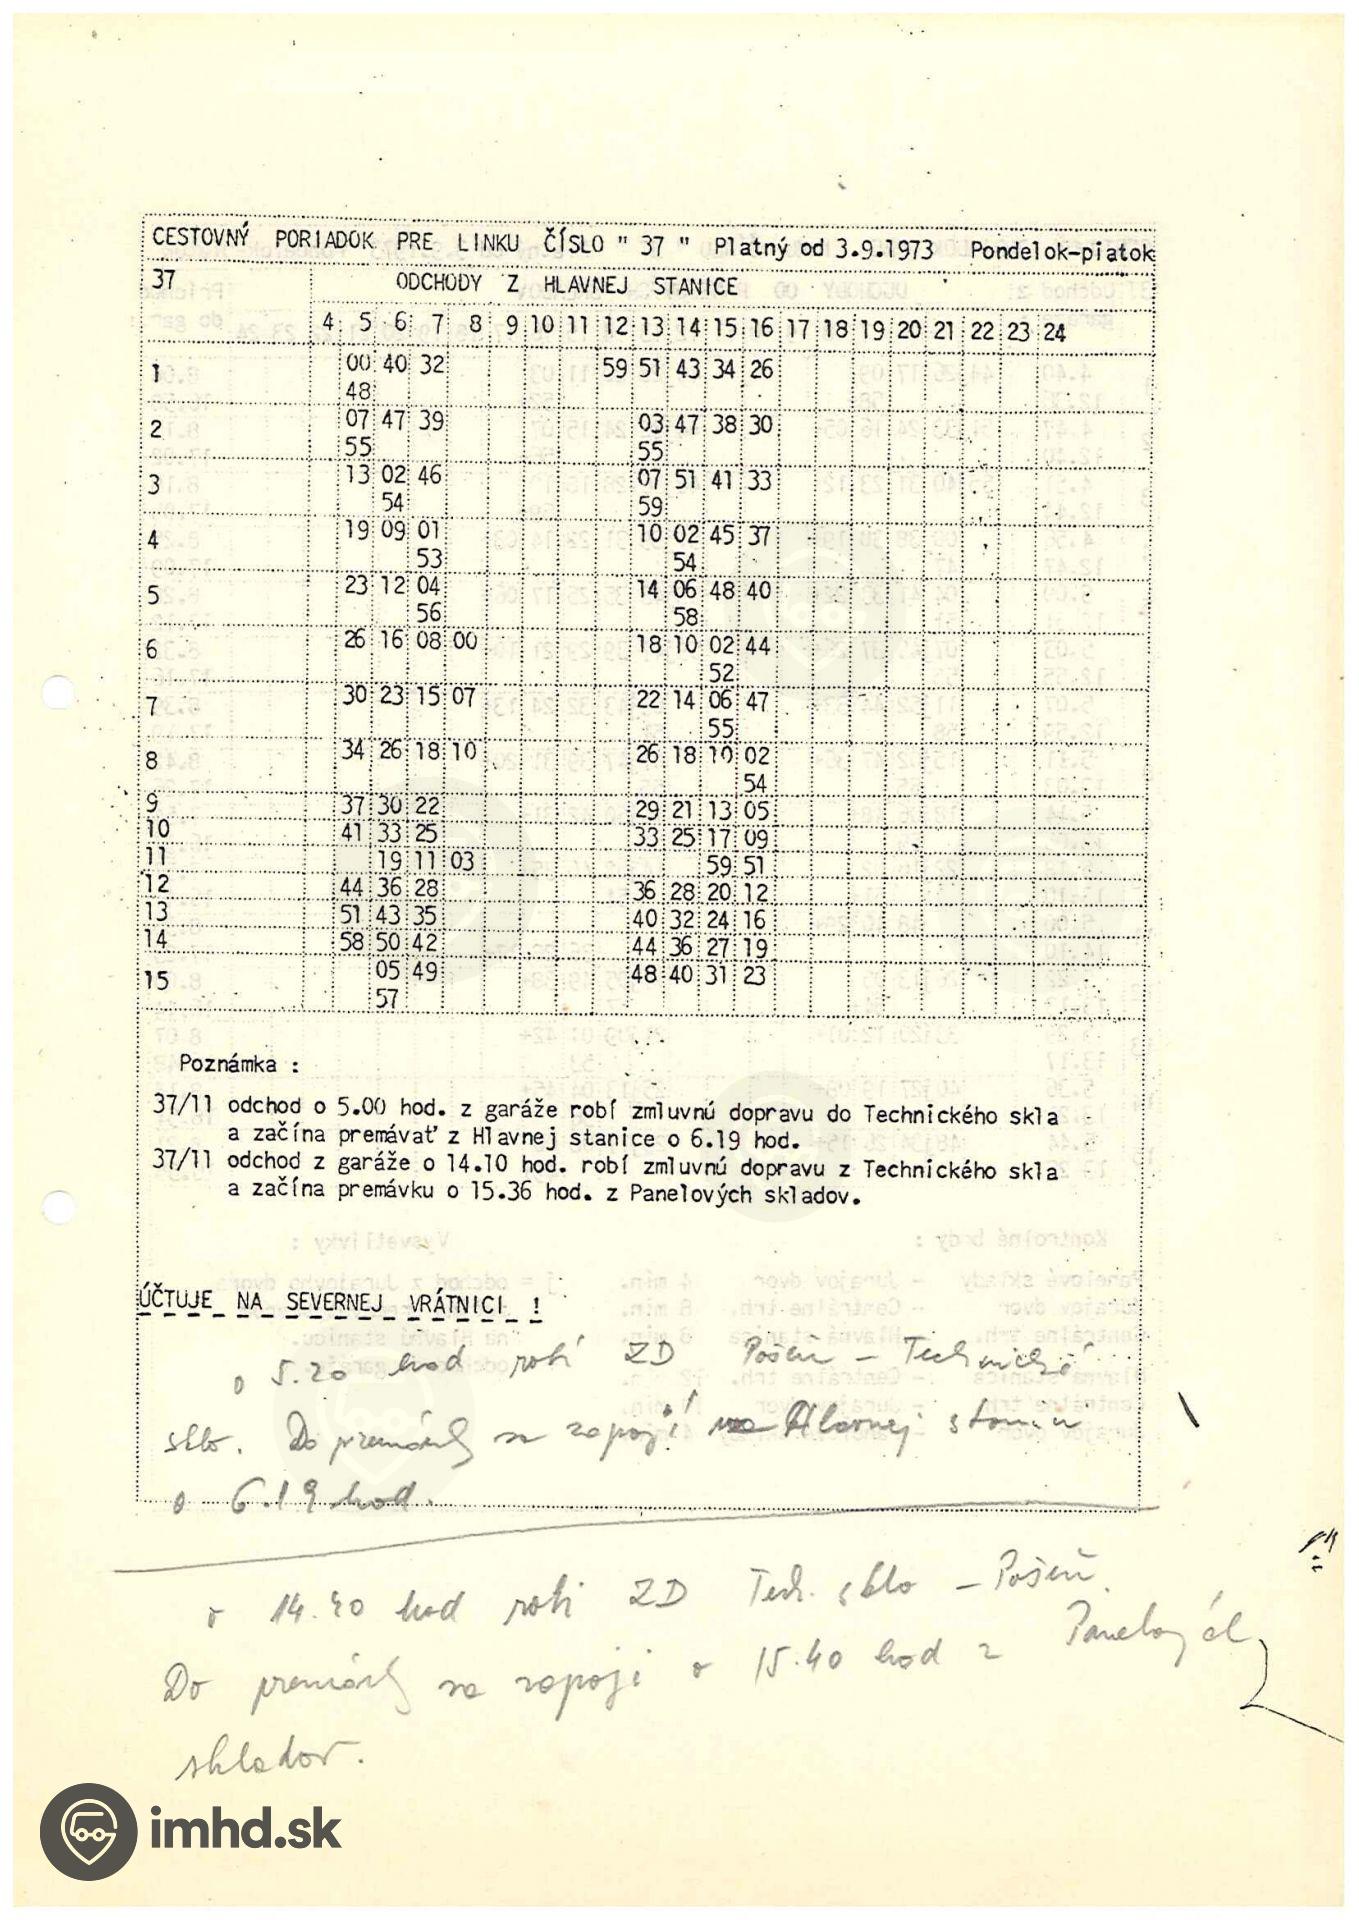 CESTOVNÝ PORIADOK PRE LINKU ČÍSLO " 37 " Platný od 3.9.1973 Pondelok-piatok
37 ODCHODY Z HLAVNEJ STANICE
4 5 6 7 8 9 10 11 12 13 14 15 16 17 18 19 20 21 22 23 24
1 00 40 32 59 51 43 34 26
48
2 07 47 39 03 47 38 30
55 55
3 13 02 46 07 51 41 33
54 59
4 19 09 01 10 02 45 37
53 54
5 23 12 04 14 06 48 40
56 58
6 26 16 08 00 18 10 02 44
52
7 30 23 15 07 22 14 06 47
55
8 34 26 18 10 26 18 10 02
54
9 37 30 22 29 21 13 05
10 41 33 25 33 25 17 09
11 19 11 03 59 51
12 44 36 28 36 28 20 12
13 51 43 35 40 32 24 16
14 58 50 42 44 36 27 19
15 05 49 48 40 31 23
57
Poznámka :
37/11 odchod o 5.00 hod. z garáže robí zmluvnú dopravu do Technického skla
a začína premávať z Hlavnej stanice o 6.19 hod.
37/11 odchod z garáže o 14.10 hod. robí zmluvnú dopravu z Technického skla
a začína premávku o 15.36 hod. z Panelových skladov.
ÚČTUJE NA SEVERNEJ VRÁTNICI !
o 5.20 hod robí ZD Pošeň - Technické
sklo. Do premávky sa zapojí na Hlavnej stanici
o 6.19 hod.
o 14.40 hod robi ZD Tech. sklo - Pošeň.
Do premávky sa zapoji o 15.40 hod z Panelových
skladov.
imhd.sk